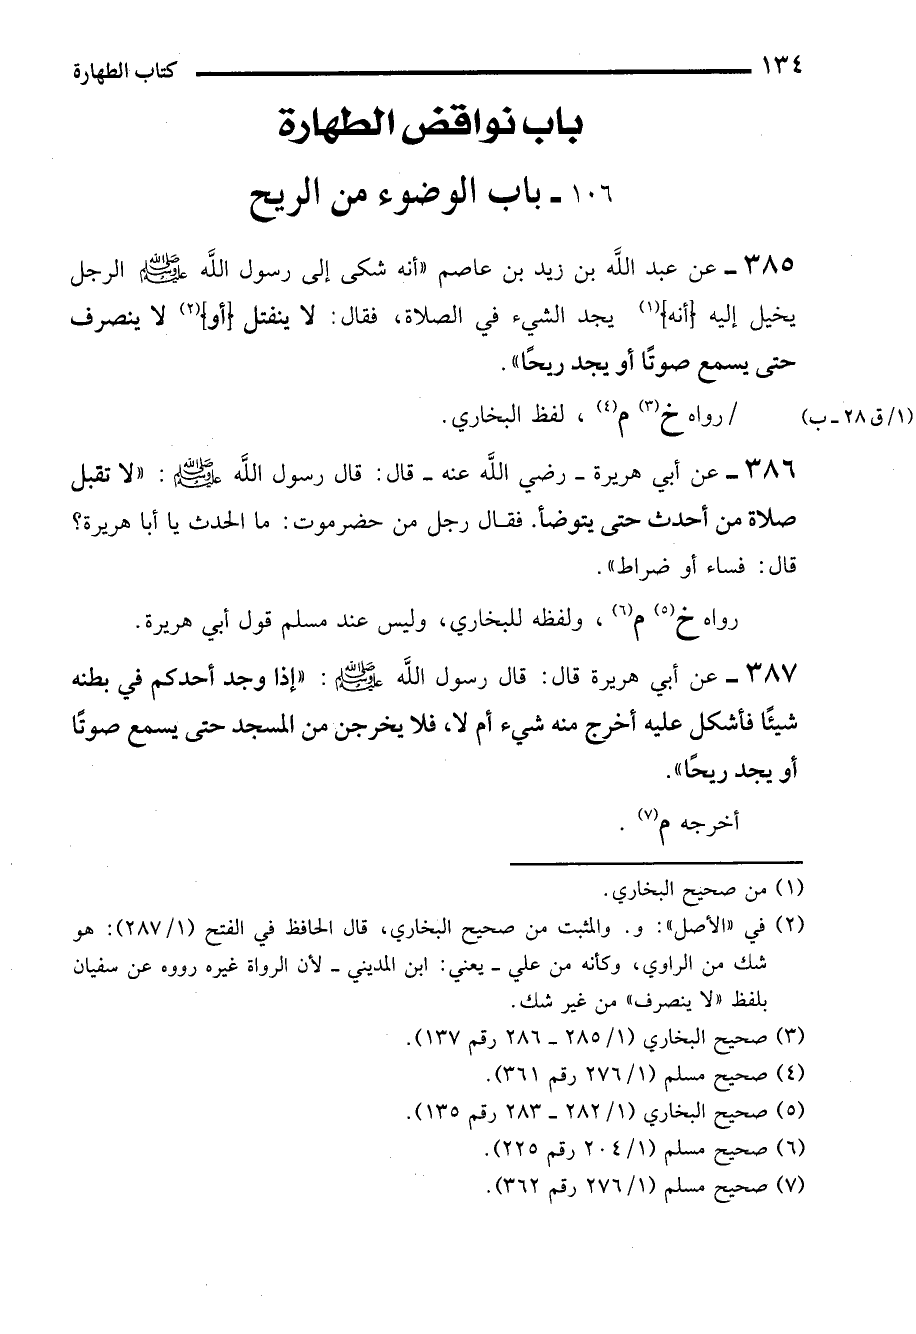 ١٣٤ كتاب الطهارة
باب نواقض الطهارة
١٠٦ ـ باب الوضوء من الريح
٣٨٥ ـ عن عبد اللَّه بن زيد بن عاصم «أنه شكى إلى رسول اللَّه ﷺ الرجل
يخيل إليه {أنه}(١) يجد الشيء في الصلاة، فقال: لا ينفتل {أو}(٢) لا ينصرف
حتى يسمع صوتًا أو يجد ريحًا».
/ رواه خ(٣) م(٤) ، لفظ البخاري. (١/ ق ٢٨ ـ ب)
٣٨٦ ـ عن أبي هريرة ـ رضي اللَّه عنه ـ قال: قال رسول اللَّه ﷺ : «لا تقبل
صلاة من أحدث حتى يتوضأ. فقال رجل من حضرموت: ما الحدث يا أبا هريرة؟
قال: فساء أو ضراط».
رواه خ(٥) م(٦) ، ولفظه للبخاري، وليس عند مسلم قول أبي هريرة.
٣٨٧ ـ عن أبي هريرة قال: قال رسول اللَّه ﷺ : «إذا وجد أحدكم في بطنه
شيئًا فأشكل عليه أخرج منه شيء أم لا، فلا يخرجن من المسجد حتى يسمع صوتًا
أو يجد ريحًا».
أخرجه م(٧) .
(١) من صحيح البخاري.
(٢) في «الأصل»: و. والمثبت من صحيح البخاري، قال الحافظ في الفتح (١/ ٢٨٧): هو
شك من الراوي، وكأنه من علي ـ يعني: ابن المديني ـ لأن الرواة غيره رووه عن سفيان
بلفظ «لا ينصرف» من غير شك.
(٣) صحيح البخاري (١/ ٢٨٥ ـ ٢٨٦ رقم ١٣٧).
(٤) صحيح مسلم (١/ ٢٧٦ رقم ٣٦١).
(٥) صحيح البخاري (١/ ٢٨٢ ـ ٢٨٣ رقم ١٣٥).
(٦) صحيح مسلم (١/ ٢٠٤ رقم ٢٢٥).
(٧) صحيح مسلم (١/ ٢٧٦ رقم ٣٦٢).